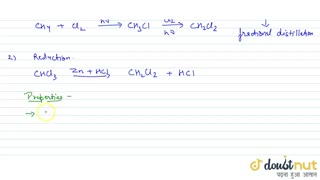 CH4 + Cl2 →hν CH3Cl →Cl2 hν CH2Cl2 ↓
fractional distillation
2) Reduction.
CHCl3 →Zn + HCl CH2Cl2 + HCl
Properties -
→
doubtnut
पढ़ना हुआ आसान